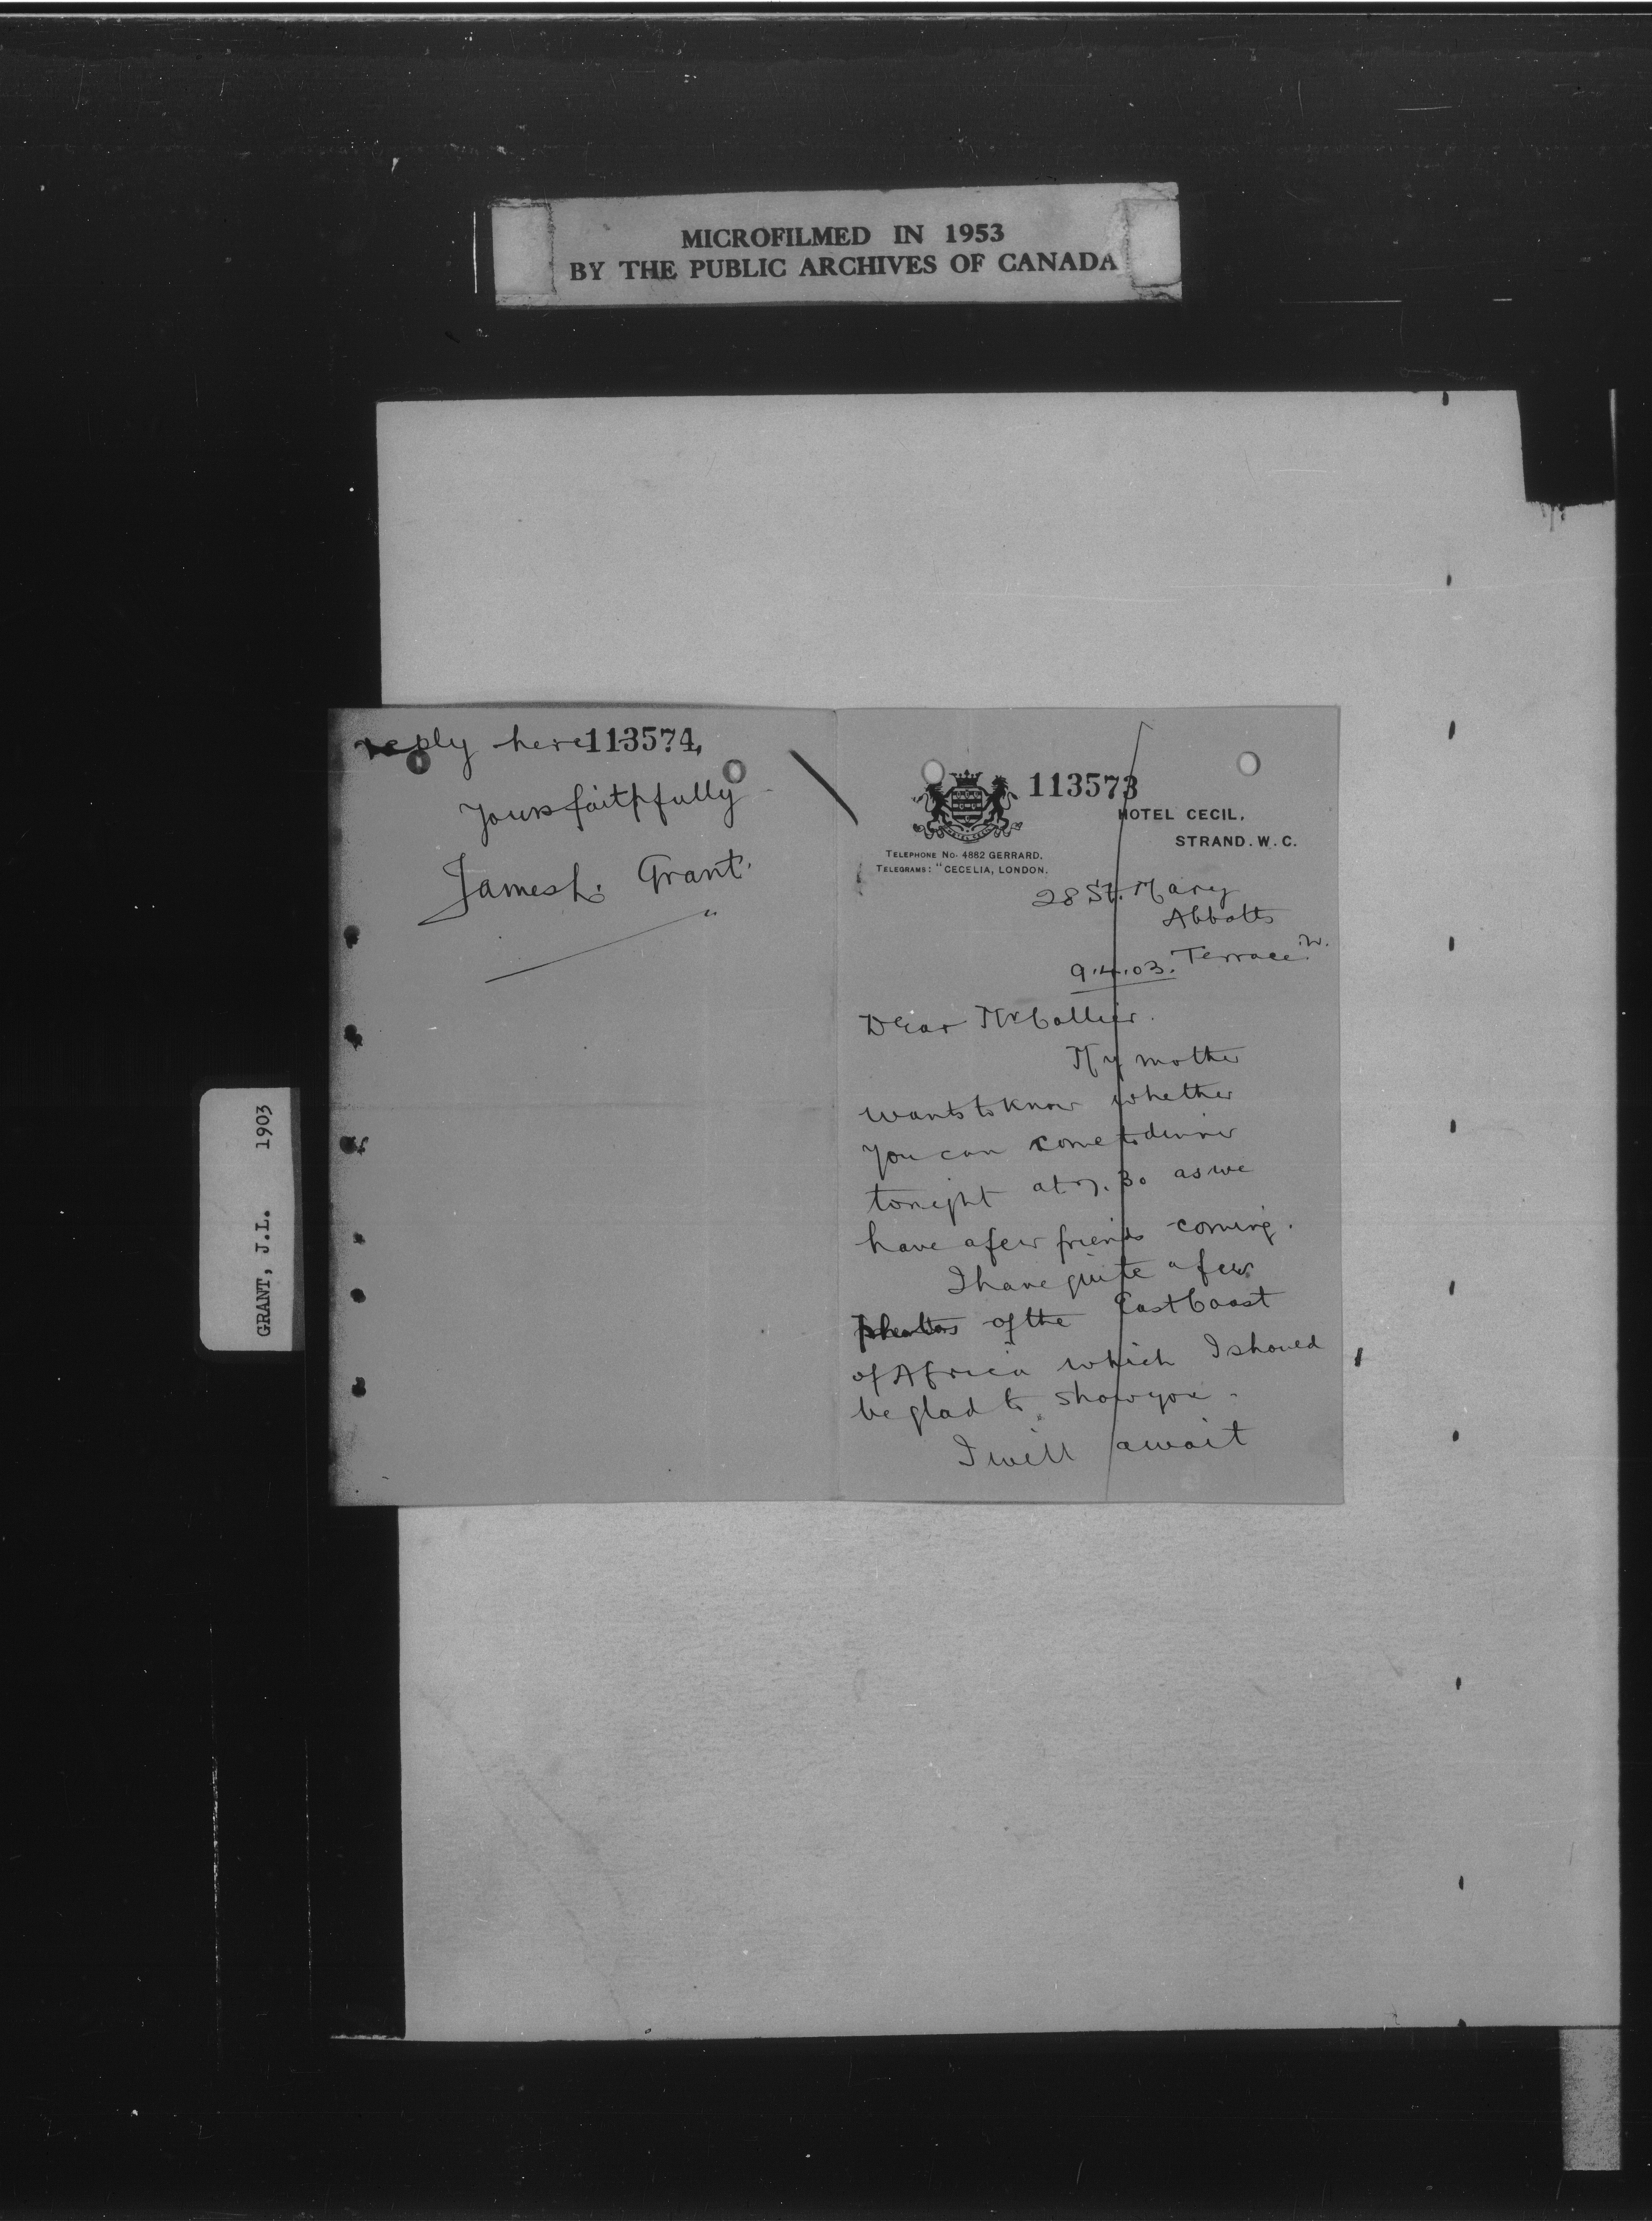 MICROFILMED IN 1953
BY THE PUBLIC ARCHIVES OF CANADA
GRANT, J.L. 1903
113573
HOTEL CECIL,
STRAND. W. C.
TELEPHONE No. 4882 GERRARD.
TELEGRAMS: "CECELIA, LONDON.
28 St. Mary
Abbotts
Terrace W.
9.4.03.
Dear Mr Collier.
My mother
wants to know whether
you can come to dinner
tonight at 7.30 as we
have a few friends coming.
I have quite a few
photos of the East Coast
of Africa which I should
be glad to show you.
I will await
reply here 113574
Yours faithfully
James L. Grant.